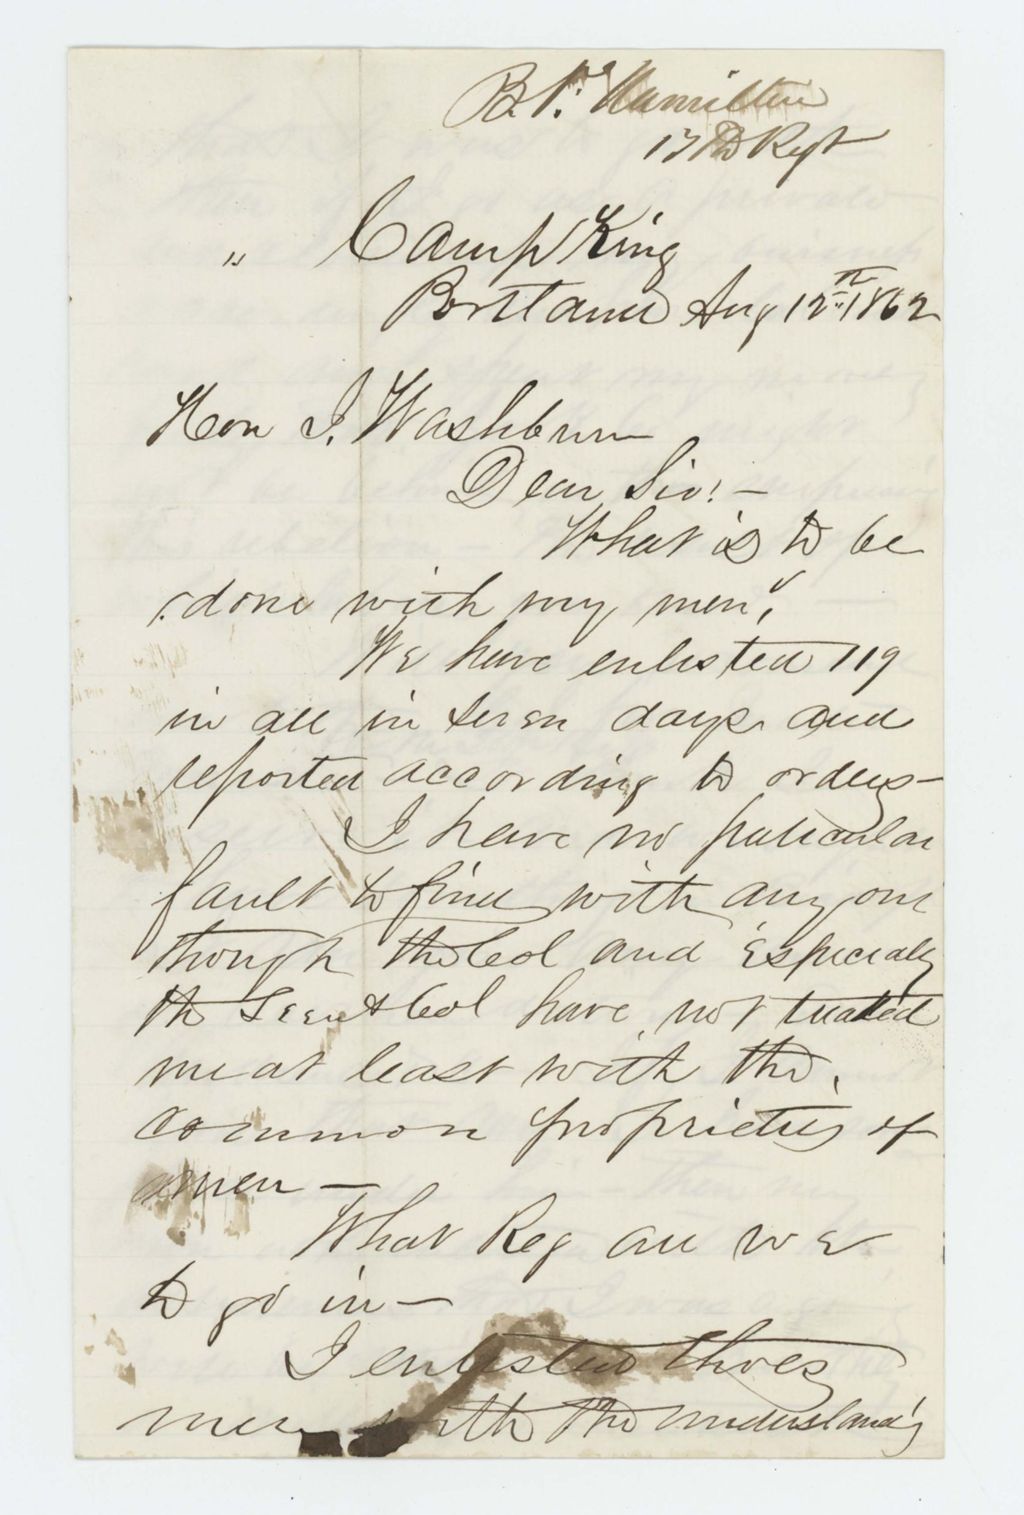 B. F. Hamilton
17th Regt
" Camp King
Portland Aug 12th 1862
Hon I. Washburn
Dear Sir! –
What is to be
done with my men?
We have enlisted 119
in all in seven days and
reported according to orders –
I have no paticular
fault to find with any one
though the Col and Especially
the Lieut Col have not treated
me at least with the
common proprieties of
men –
What Reg are we
to go in –
I enlisted thoes
men with the understand'g